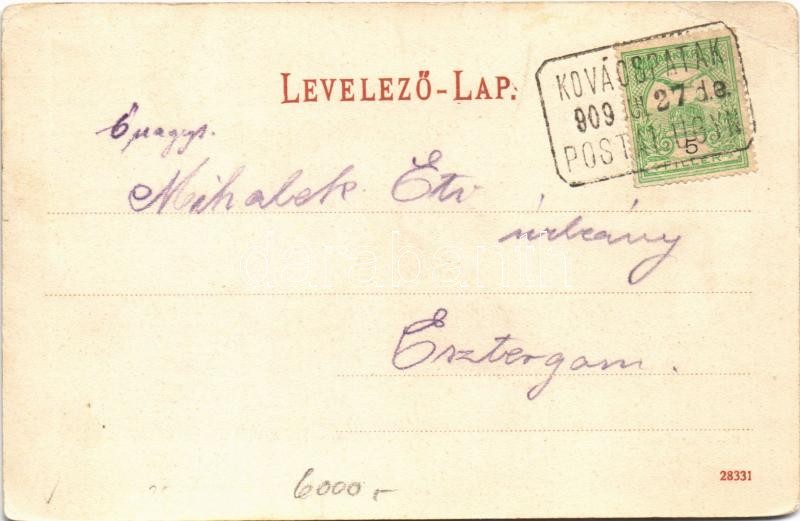 LEVELEZŐ-LAP.
KOVÁCSPATAK
909 27 d.e.
POSTAI ÜGYN
5
Ő nagys.
Mihalek Etv
úrleány
Esztergom.
6000,-
28331